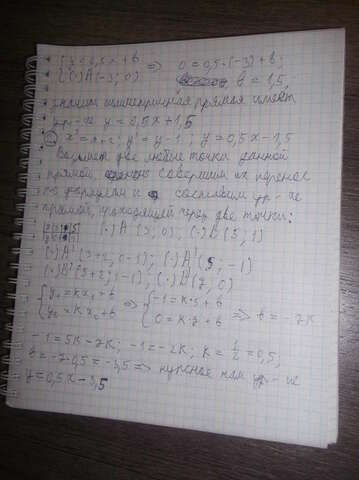 { y = 0,5x + b
{ (·) A (-3; 0) => 0 = 0,5·(-3) + b;
b = 1,5,
значит симметричная прямая имеет
ур-ие y = 0,5x + 1,5
x' = x+2; y' = y-1; y = 0,5x - 1,5
Возьмем две любые точки данной
прямой, совершим их перенос
по формулам и составим ур-ие
прямой, проходящей через две точки:
(·) A (3; 0); (·) B (5; 1)
(·) A' (3+2; 0-1); (·) A' (5; -1)
(·) B' (5+2; 1-1), (·) B' (7; 0)
{ y₁ = kx₁ + b => { -1 = k·5 + b
{ y₂ = kx₂ + b { 0 = k·7 + b => b = -7k
-1 = 5k - 7k; -1 = -2k; k = 1/2 = 0,5;
b = -7·0,5 = -3,5 => нужное нам ур-ие
y = 0,5x - 3,5